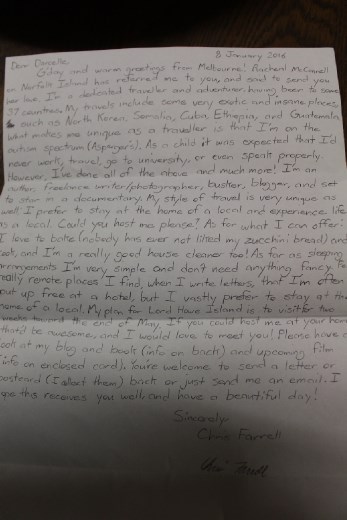 8 January 2016
Dear Danielle,
G'day and warm greetings from Melbourne! Racheral McConnell
on Norfolk Island has referred me to you, and said to send you
her love. I'm a dedicated traveller and adventurer, having been to some
37 countries. My travels include some very exotic and insane places,
such as North Korea, Somalia, Cuba, Ethiopia, and Guatemala.
What makes me unique as a traveller is that I'm on the
autism spectrum (Aspergers). As a child it was expected that I'd
never work, travel, go to university, or even speak properly.
However, I've done all of the above and much more! I'm an
author, freelance writer/photographer, busker, blogger, and set
to star in a documentary. My style of travel is very unique as
well. I prefer to stay at the home of a local and experience life
as a local. Could you host me please? As for what I can offer:
I love to bake (nobody has ever not liked my zucchini bread) and
cook, and I'm a really good house cleaner too! As far as sleeping
arrangements I'm very simple and don't need anything fancy. In
really remote places I find, when I write letters, that I'm often
put up free at a hotel, but I vastly prefer to stay at the
home of a local. My plan for Lord Howe Island is to visit for two
weeks toward the end of May. If you could host me at your home
that'd be awesome, and I would love to meet you! Please have a
look at my blog and book (info on back) and upcoming film
(info on enclosed card). You're welcome to send a letter or
postcard (I collect them) back or just send me an email. I
hope this receives you well, and have a beautiful day!
Sincerely,
Chris Farrell
Chris Farrell